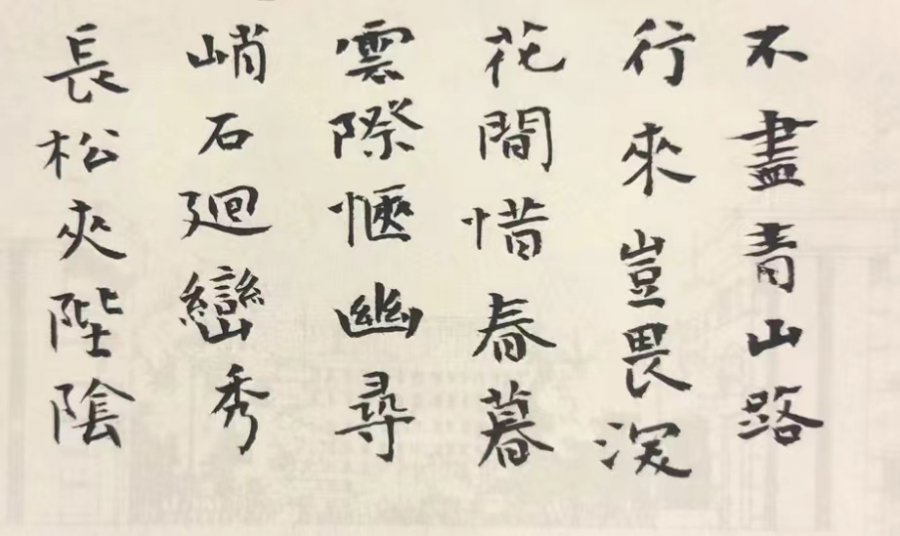 不盡青山路
行來豈畏深
花間惜春暮
雲際愜幽尋
峭石廻巒秀
長松夾陛陰